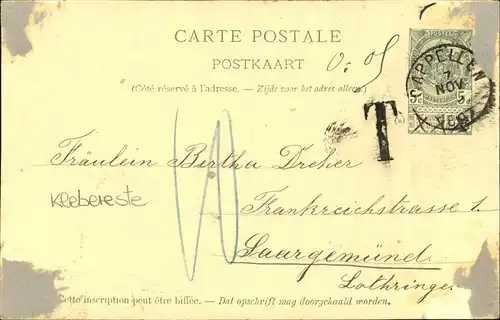 CARTE POSTALE
POSTKAART
0.05
(Côté réservé à l'adresse. — Zijde voor het adres alleen.)
CAPPELLEN
7
NOV
5
1893
T
Fräulein Bertha Dreher
Klebereste
10
Frankreichstrasse 1.
Saargemünd.
Lothringen
Cette inscription peut être biffée. — Dat opschrift mag doorgehaald worden.